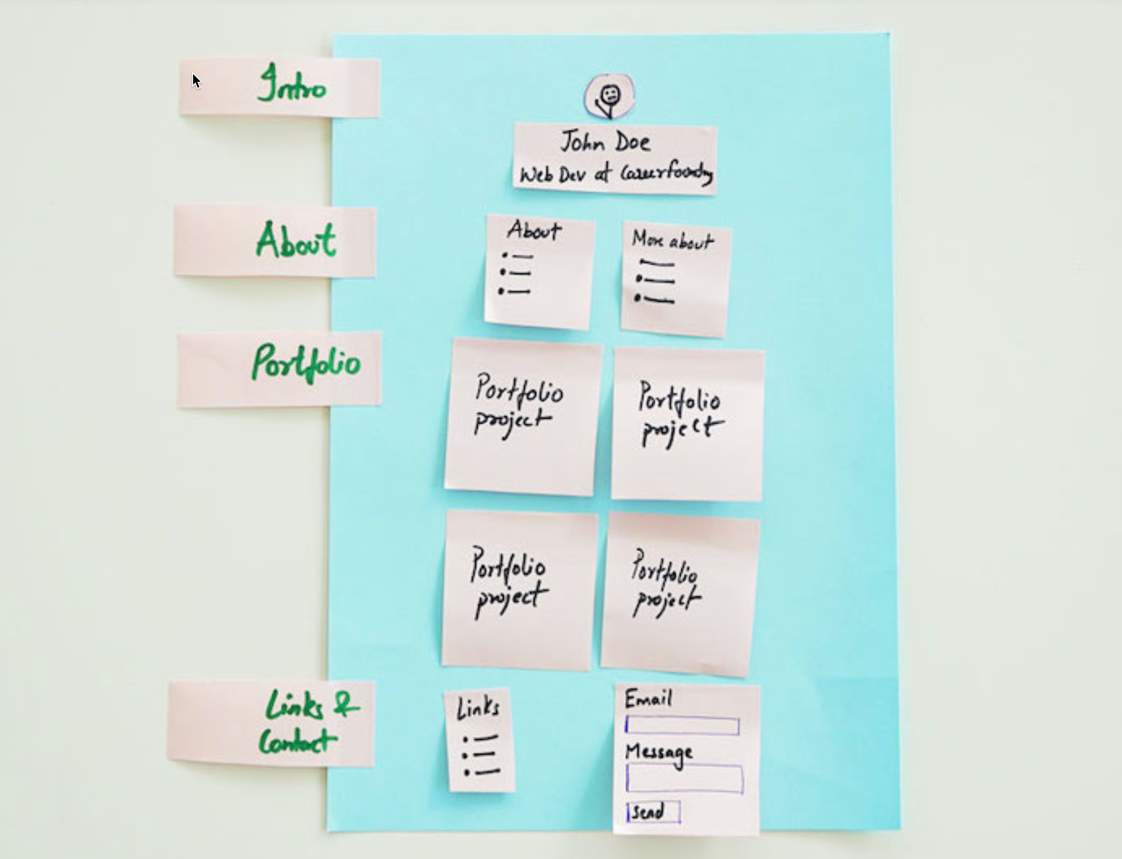 Intro
John Doe
Web Dev at Careerfoundry
About
About
More about
Portfolio
Portfolio
project
Portfolio
project
Portfolio
project
Portfolio
project
Links &
Contact
Links
Email
Message
Send